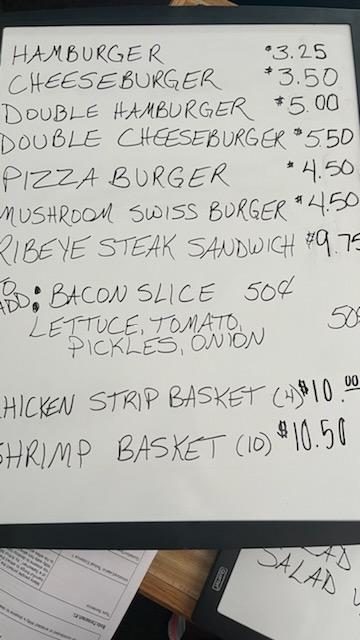 HAMBURGER $3.25
CHEESEBURGER $3.50
DOUBLE HAMBURGER $5.00
DOUBLE CHEESEBURGER $5.50
PIZZA BURGER $4.50
MUSHROOM SWISS BURGER $4.50
RIBEYE STEAK SANDWICH $9.75
TO ADD: BACON SLICE 50¢
LETTUCE, TOMATO, 50¢
PICKLES, ONION
HICKEN STRIP BASKET (4) $10.00
SHRIMP BASKET (10) $10.50
SALAD